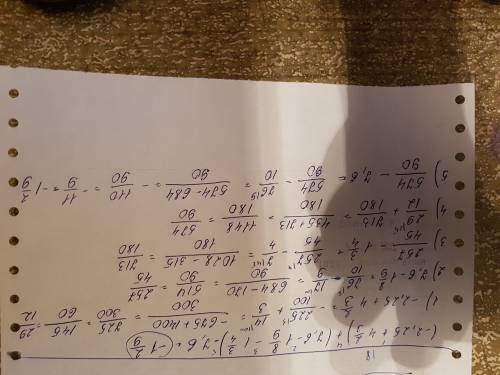 (-2,25 + 4 2/3) + (7,6 - 1 8/9 - 1 3/4) - 7,6 = (-1 2/9)
1) -2,25 + 4 2/3 = -225/100 + 14/3 = -675+1400/300 = 725/300 = 145/60 = 29/12
2) 7,6 - 1 8/9 = 76/10 - 17/9 = 684-170/90 = 514/90 = 257/45
3) 257/45 - 1 3/4 = 257/45 - 7/4 = 1028-315/180 = 713/180
4) 29/12 + 713/180 = 435+713/180 = 1148/180 = 574/90
5) 574/90 - 7,6 = 574/90 - 76/10 = 574-684/90 = -110/90 = -11/9 = -1 2/9